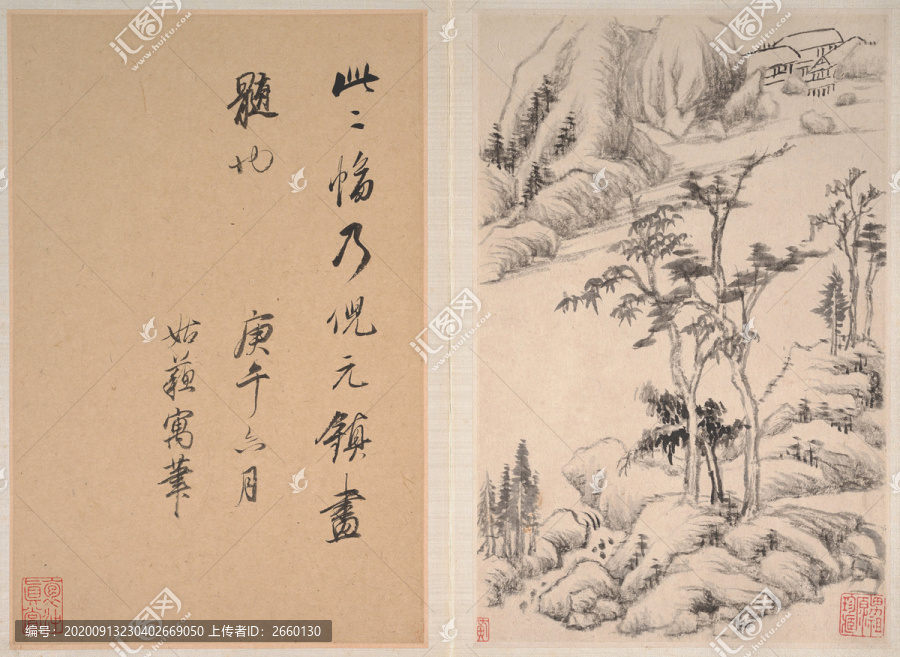 此二幅乃倪元鎮畫
髓也
庚午六月
姑蘇寓筆
编号: 20200913230402669050 上传者ID: 2660130
汇图网
www.huitu.com